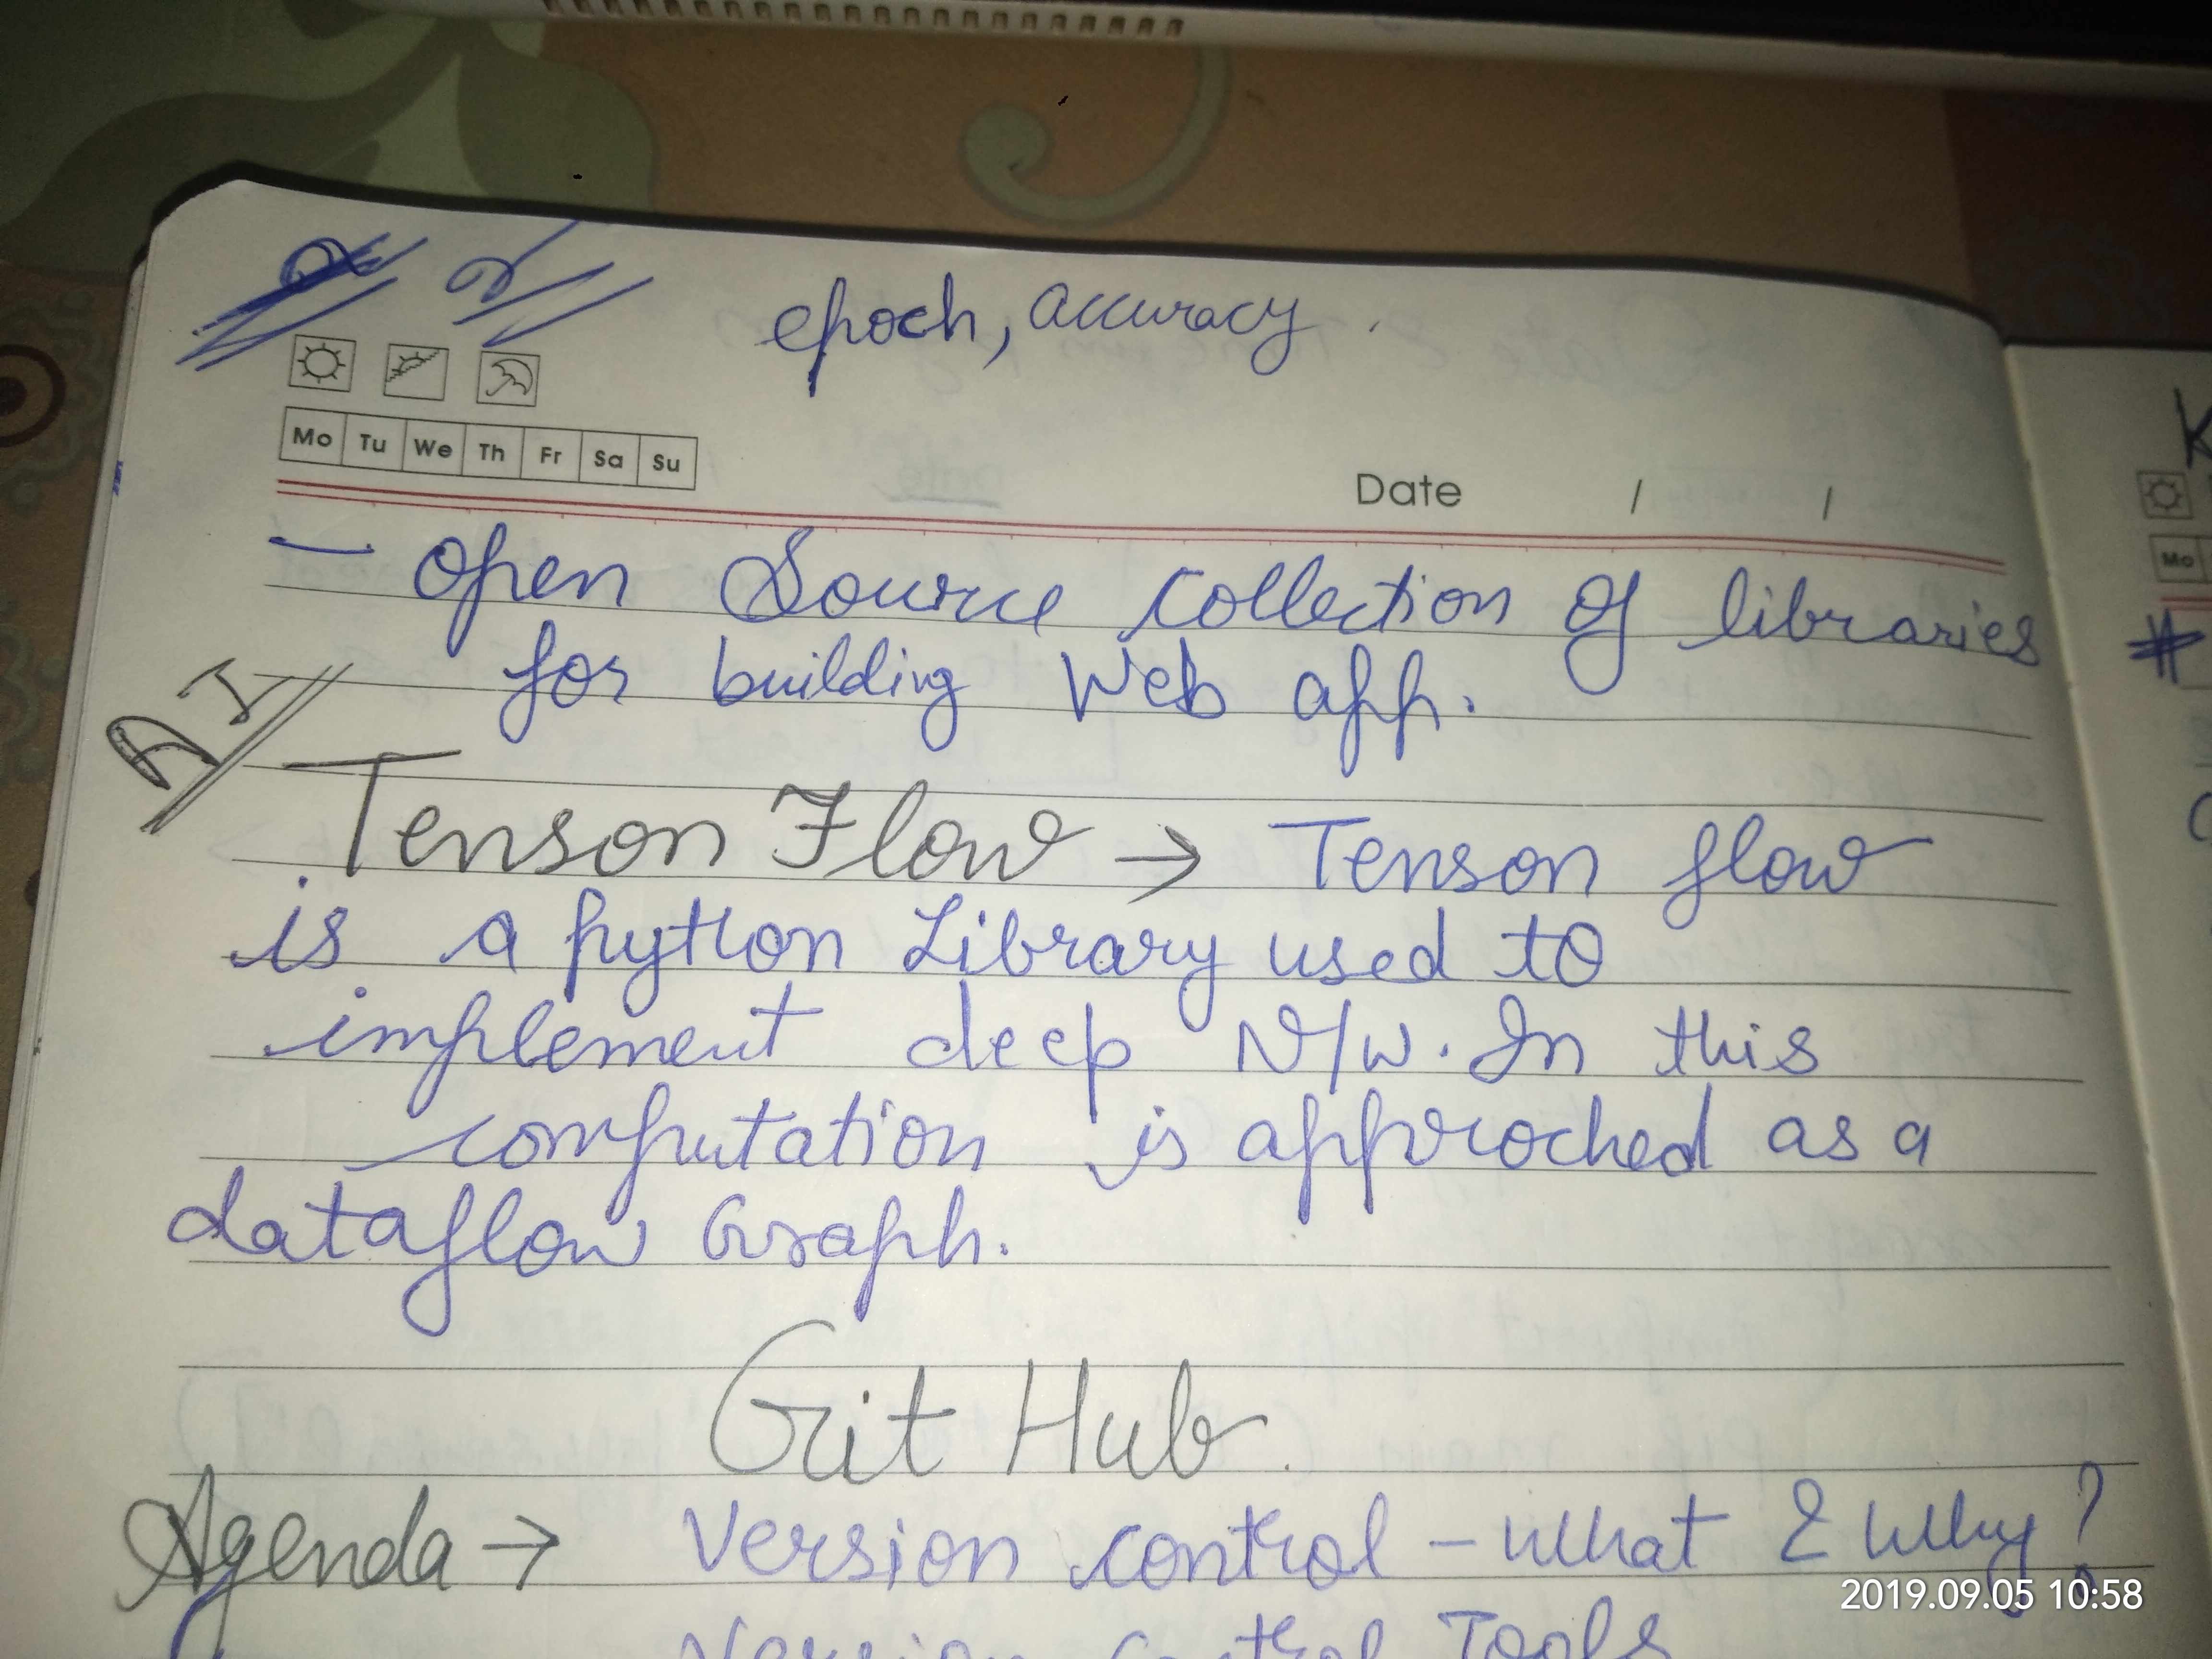 epoch, accuracy.
Mo Tu We Th Fr Sa Su
Date / /
— open Source collection of libraries
for building Web app.
AI
Tenson Flow → Tenson flow
is a python Library used to
implement deep N/w. In this
computation is approched as a
dataflow Graph.
Git Hub.
Agenda → Version control - what & why?
Version control Tools
2019.09.05 10:58
K
Mo
#